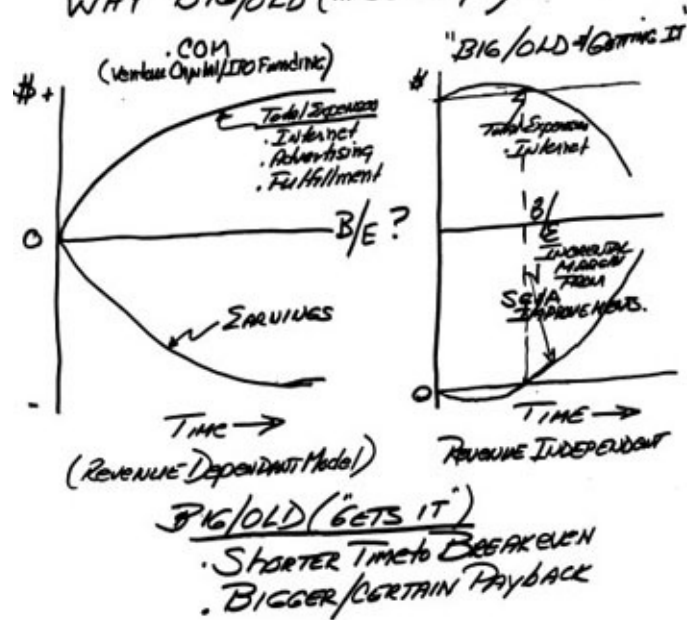 WHY BIG/OLD (
.COM
(Venture Capital/IPO Funding)
$+
Total Expenses
. Internet
. Advertising
. Fulfillment
0
B/E ?
EARNINGS
-
TIME →
(REVENUE DEPENDANT Model)
"BIG/OLD & GETTING IT"
$
Total Expenses
. Internet
B/E
INCREMENTAL
MARGIN
FROM
SG&A
IMPROVEMENTS.
0
TIME →
REVENUE INDEPENDENT
BIG/OLD ("GETS IT")
. SHORTER TIME to BREAKEVEN
. BIGGER/CERTAIN PAYBACK